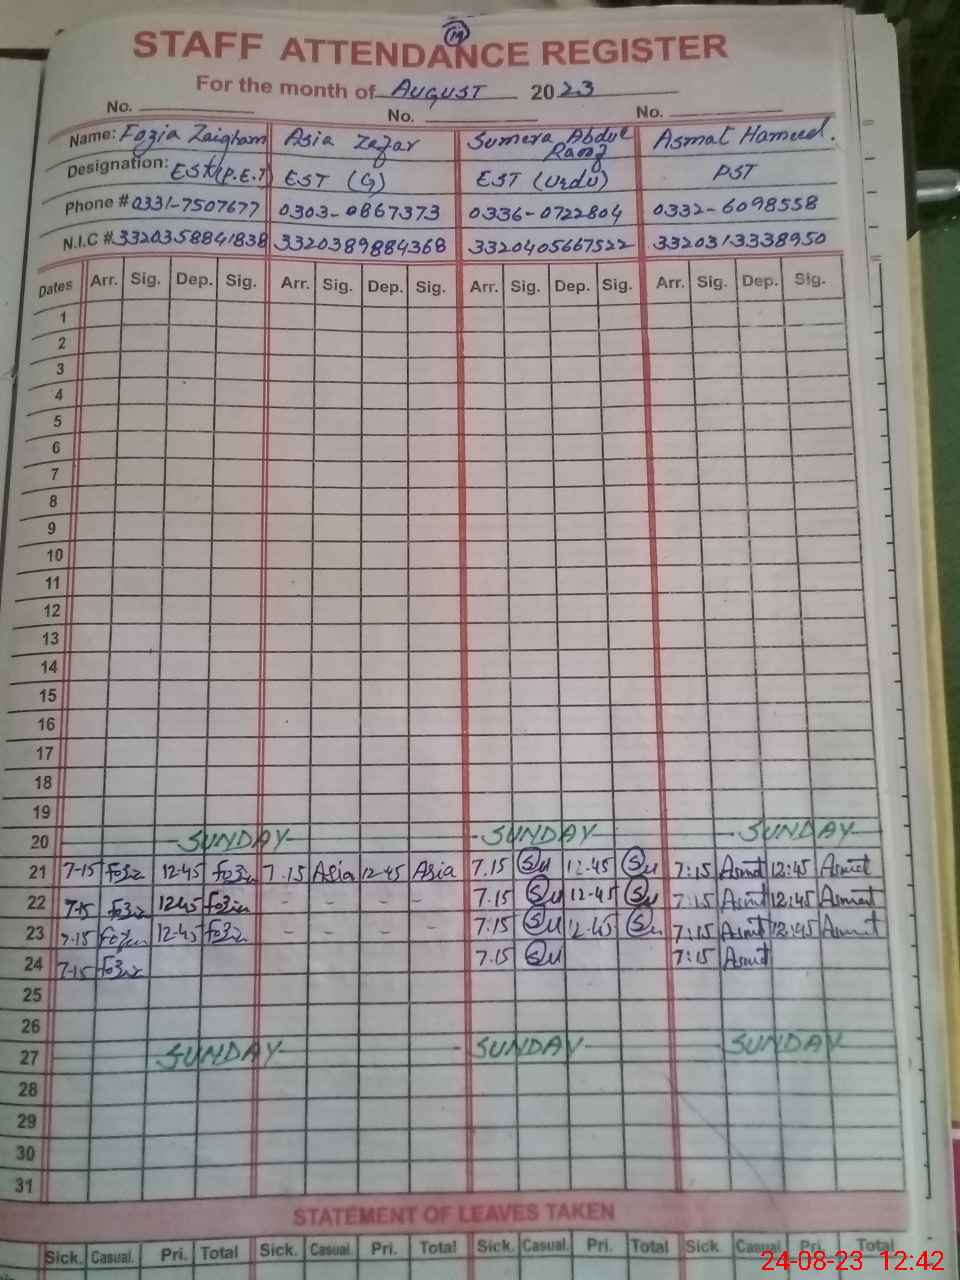 19
STAFF ATTENDANCE REGISTER
For the month of August 2023
No. No. No.
Name: Fozia Zaigham Asia Zafar Sumera Abdul Asmat Hameed.
Designation: EST(P.E.T) EST (G) EST (Urdu) PST
Phone # 0331-7507677 0303-0867373 0336-0722804 0332-6098558
N.I.C # 3320358841838 3320389884368 3320405667522 3320313338950
Dates Arr. Sig. Dep. Sig. Arr. Sig. Dep. Sig. Arr. Sig. Dep. Sig. Arr. Sig. Dep. Sig.
1
2
3
4
5
6
7
8
9
10
11
12
13
14
15
16
17
18
19
20 SUNDAY SUNDAY SUNDAY
21 7-15 12-45 7.15 Asia 12-45 Asia 7.15 Su 12-45 Su 7:15 Asmt 12:45 Asmat
22 7-15 12-45 - - - - 7.15 Su 12-45 Su 7:15 Asmt 12:45 Asmat
23 7-15 12-45 - - - - 7.15 Su 12-45 Su 7:15 Asmt 12:45 Asmat
24 7-15 7.15 Su 7:15 Asmt
25
26
27 SUNDAY SUNDAY SUNDAY
28
29
30
31
STATEMENT OF LEAVES TAKEN
Sick. Casual. Pri. Total Sick. Casual. Pri. Total Sick. Casual. Pri. Total Sick Casual Pri. Total
24-08-23 12:42